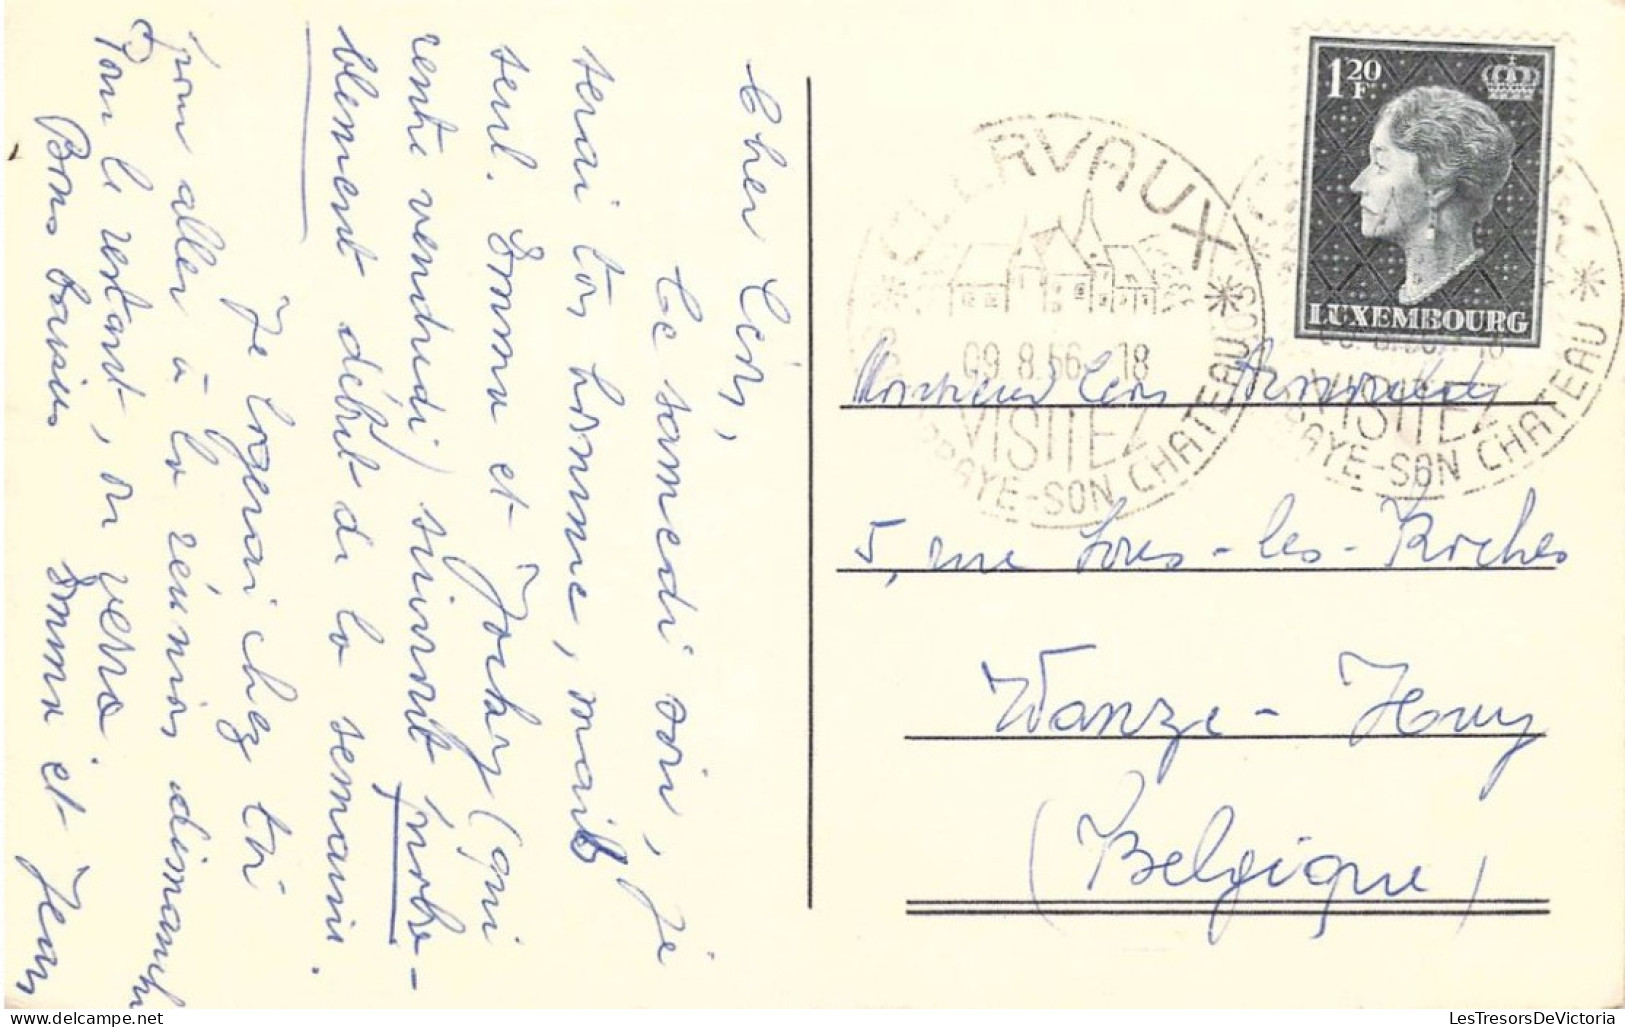 Cher Léon,
Ce samedi soir, je
serai ton homme, mais
seul. Emma et Jocky (qui
rentre vendredi) suivront proba-
blement début de la semaine.
Je logerai chez toi
pour aller à la réunion dimanche
Pour le restant, on verra
Bons baisers Emma et Jean
1 20
F
LUXEMBOURG
CLERVAUX
09.8.56 - 18
VISITEZ
SON ABBAYE-SON CHATEAU
18
VISITEZ
ABBAYE-SON CHATEAU
Monsieur Léon
5, rue Sous-les-Roches
Wanze-Huy
(Belgique)
LesTresorsDeVictoria